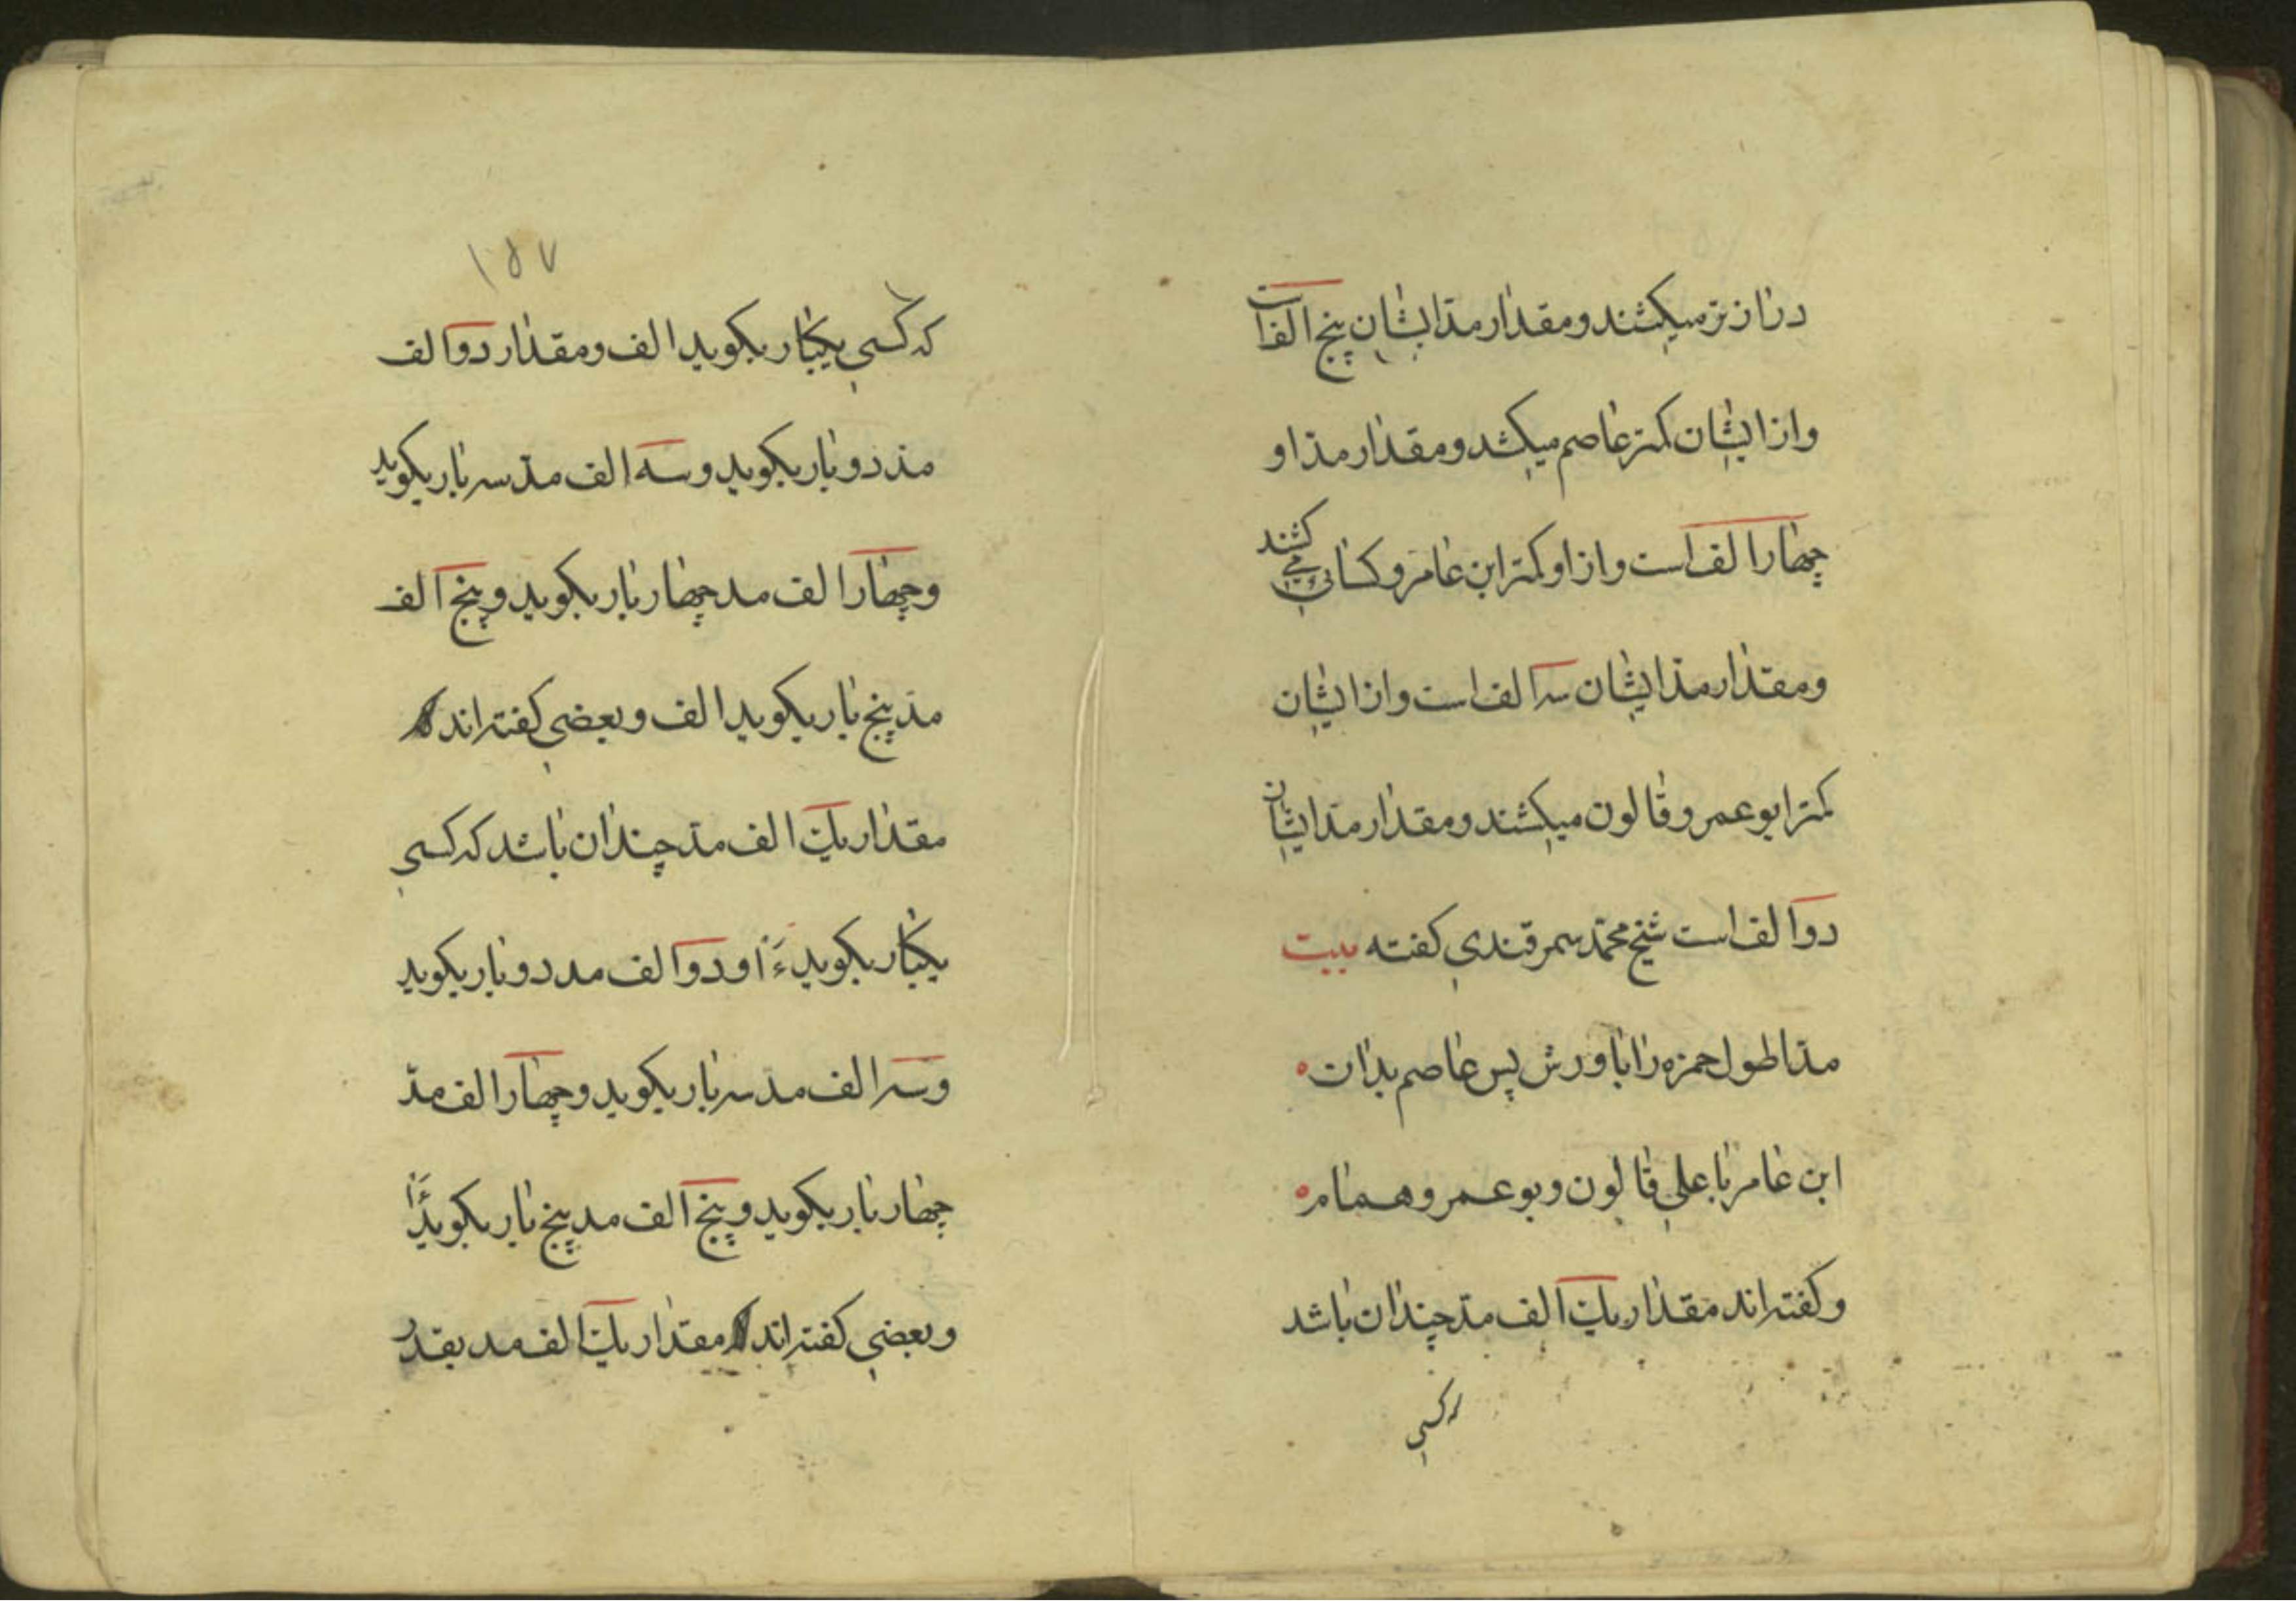 درازتر میکشند و مقدار مد ایشان پنج الف است
و از ایشان کمتر عاصم میکشد و مقدار مد او
چهار الف است و از او کمتر ابن عامر و کسائی می کشند
و مقدار مد ایشان سه الف است و از ایشان
کمتر ابو عمر و قالون میکشند و مقدار مد ایشان
دو الف است شیخ محمد سمرقندی کفته بیت
مد اطول حمزه را با ورش پس عاصم بدان ه
ابن عامر با علی قالون و بو عمر و همام ه
و کفته اند مقدار یک الف مد چندان باشد
که کسی
۱۵۷
که کسی یکبار بکوید الف و مقدار دو الف
مد دو بار بکوید و سه الف مد سه بار بکوید
و چهار الف مد چهار بار بکوید و پنج الف
مد پنج بار بکوید الف و بعضی کفته اند که
مقدار یک الف مد چندان باشد که کسی
یکبار بکوید ءَا و دو الف مد دو بار بکوید
و سه الف مد سه بار بکوید و چهار الف مد
چهار بار بکوید و پنج الف مد پنج بار بکوید ءَا
و بعضی کفته اند که مقدار یک الف مد بقدر